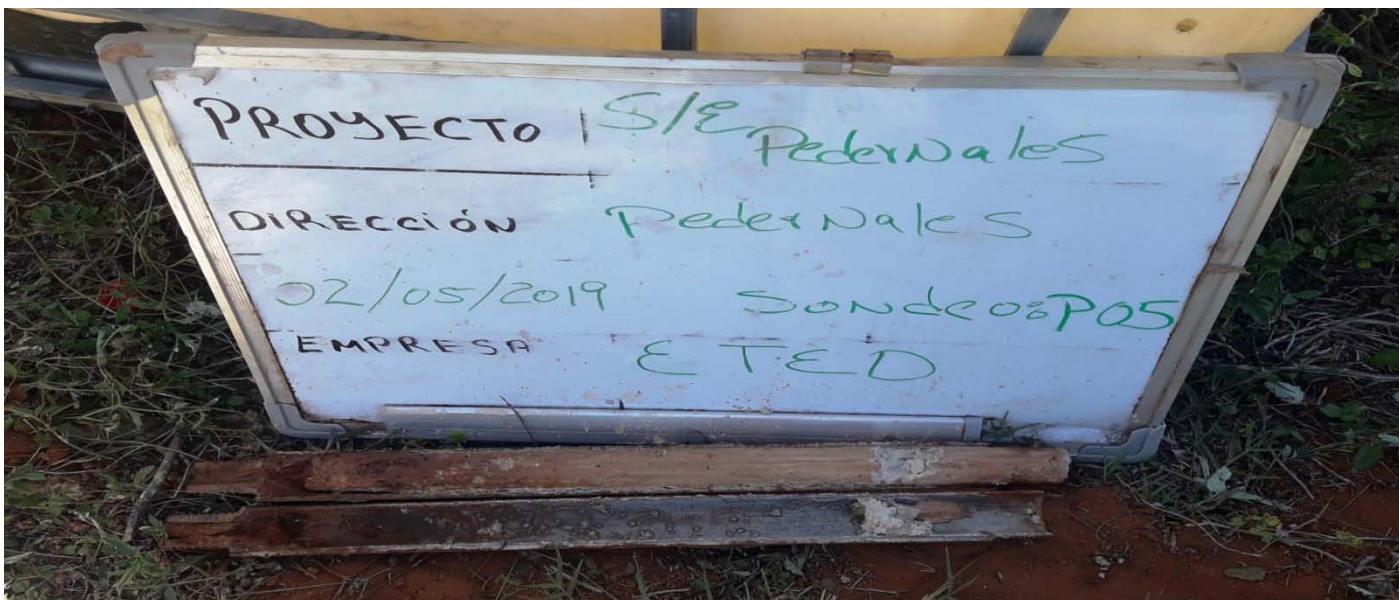 PROYECTO S/E Pedernales
DIRECCIÓN Pedernales
02/05/2019 Sondeo: P05
EMPRESA ETED